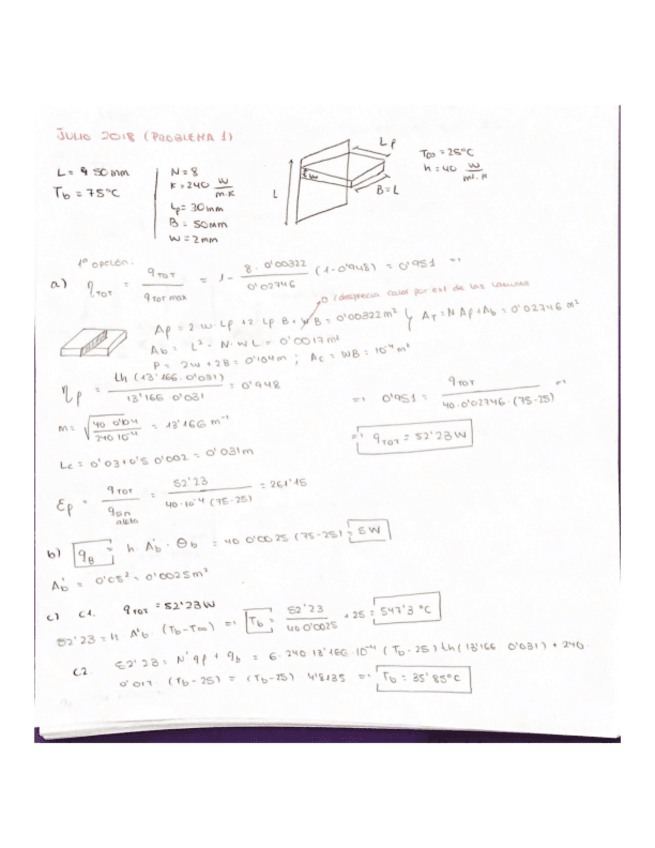 JULIO 2018 (PROBLEMA 1)
L = 50mm
T_b = 75°C
N = 8
K = 240 W/m·K
L_p = 30mm
B = 50mm
W = 2mm
L
W
L_p
B = L
T_∞ = 25°C
h = 40 W/m²·K
1ª opción.
a) η_TOT = q_TOT / q_TOT max = 1 - 8·0'00322 / 0'02746 (1-0'948) = 0'951 ⇒
0 (desprecia calor por ext de las
A_p = 2·W·L_p + 2·L_p·B + W B = 0'00322 m² y A_T = N A_p + A_b = 0'02746 m²
A_b = L² - N·W L = 0'0017 m²
P = 2W + 2B = 0'104 m ; A_c = WB = 10⁻⁴ m²
η_p = th (13'166·0'031) / 13'166·0'031 = 0'948
⇒ 0'951 = q_TOT / 40·0'02746·(75-25) ⇒
m = √(40·0'104 / 240·10⁻⁴) = 13'166 m⁻¹
⇒ q_TOT = 52'23 W
L_c = 0'03 + 0'5·0'002 = 0'031 m
ε_p = q_TOT / q_sin aleta = 52'23 / 40·10⁻⁴ (75-25) = 261'15
b) q_B = h·A'_b·θ_b = 40·0'0025 (75-25) = 5 W
A'_b = 0'05² = 0'0025 m²
c) C1. q_TOT = 52'23 W
52'23 = h A'_b (T_b - T_∞) ⇒ T_b = 52'23 / 40·0'0025 + 25 = 547'3 °C
C2. 52'23 = N' q_p + q_b = 6·240·13'166·10⁻⁴ (T_b - 25) th (13'166·0'031) + 240·
0'017·(T_b - 25) = (T_b - 25) 4'8135 ⇒ T_b = 35'85°C